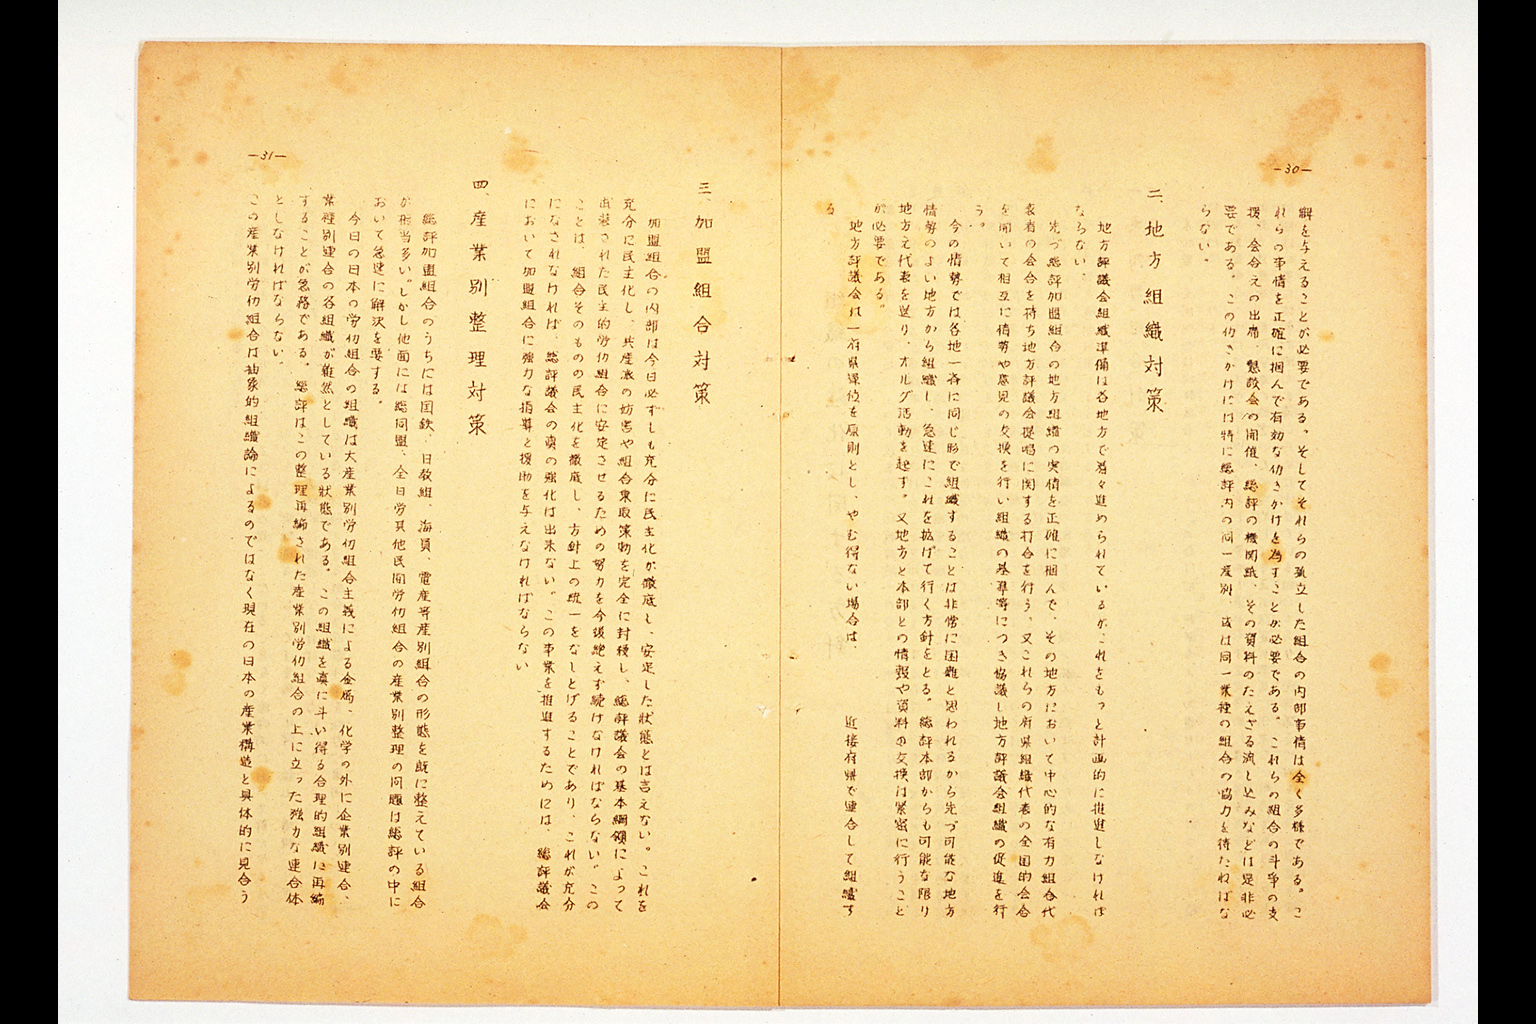 —30—
解を与えることが必要である。そしてそれらの孤立した組合の内部事情は全く多様である。こ
れらの事情を正確に掴んで有効な仂きかけを為すことが必要である。これらの組合の斗争の支
援、会合えの出席、懇談会の開催、総評の機関紙、その資料のたえざる流し込みなどは是非必
要である。この仂きかけには特に総評内の同一産別、或は同一業種の組合の協力を待たねばな
らない。
二、地方組織対策
地方評議会組織準備は各地方で着々進められているがこれをもっと計画的に推進しなければ
ならない。
先づ総評加盟組合の地方組織の実情を正確に掴んで、その地方において中心的な有力組合代
表者の会合を持ち地方評議会提唱に関する打合を行う、又これらの府県組織代表の全国的会合
を開いて相互に情勢や意見の交換を行い組織の基準等につき協議し地方評議会組織の促進を行
う。
今の情勢では各地一斉に同じ形で組織することは非常に困難と思われるから先づ可能な地方
情勢のよい地方から組織し、急速にこれを拡げて行く方針をとる。総評本部からも可能な限り
地方え代表を送り、オルグ活動を起す。又地方と本部との情報や資料の交換は緊密に行うこと
が必要である。
地方評議会は一府県単位を原則とし、やむ得ない場合は、近接府県で連合して組織す
る
三、加盟組合対策
加盟組合の内部は今日必ずしも充分に民主化が徹底し、安定した状態とは言えない。これを
充分に民主化し、共産派の妨害や組合乗取策動を完全に封殺し、総評議会の基本綱領によって
武装された民主的労仂組合に安定させるための努力を今後絶えず続けなければならない。この
ことは、組合そのものの民主化を徹底し、方針上の統一をなしとげることであり、これが充分
になされなければ、総評議会の真の強化は出来ない。この事業を推進するためには、総評議会
において加盟組合に強力な指導と援助を与えなければならない
四、産業別整理対策
総評加盟組合のうちには国鉄、日教組、海員、電産等産別組合の形態を既に整えている組合
が相当多い。しかし他面には総同盟、全日労其他民間労仂組合の産業別整理の問題は総評の中に
おいて急速に解決を要する。
今日の日本の労仂組合の組織は大産業別労仂組合主義による金属、化学の外に企業別連合、
業種別連合の各組織が雑然としている状態である。この組織を真に斗い得る合理的組織に再編
することが急務である。総評はこの整理再編された産業別労仂組合の上に立った強力な連合体
としなければならない。
この産業別労仂組合は抽象的組織論によるのではなく現在の日本の産業構造と具体的に見合う
—31—